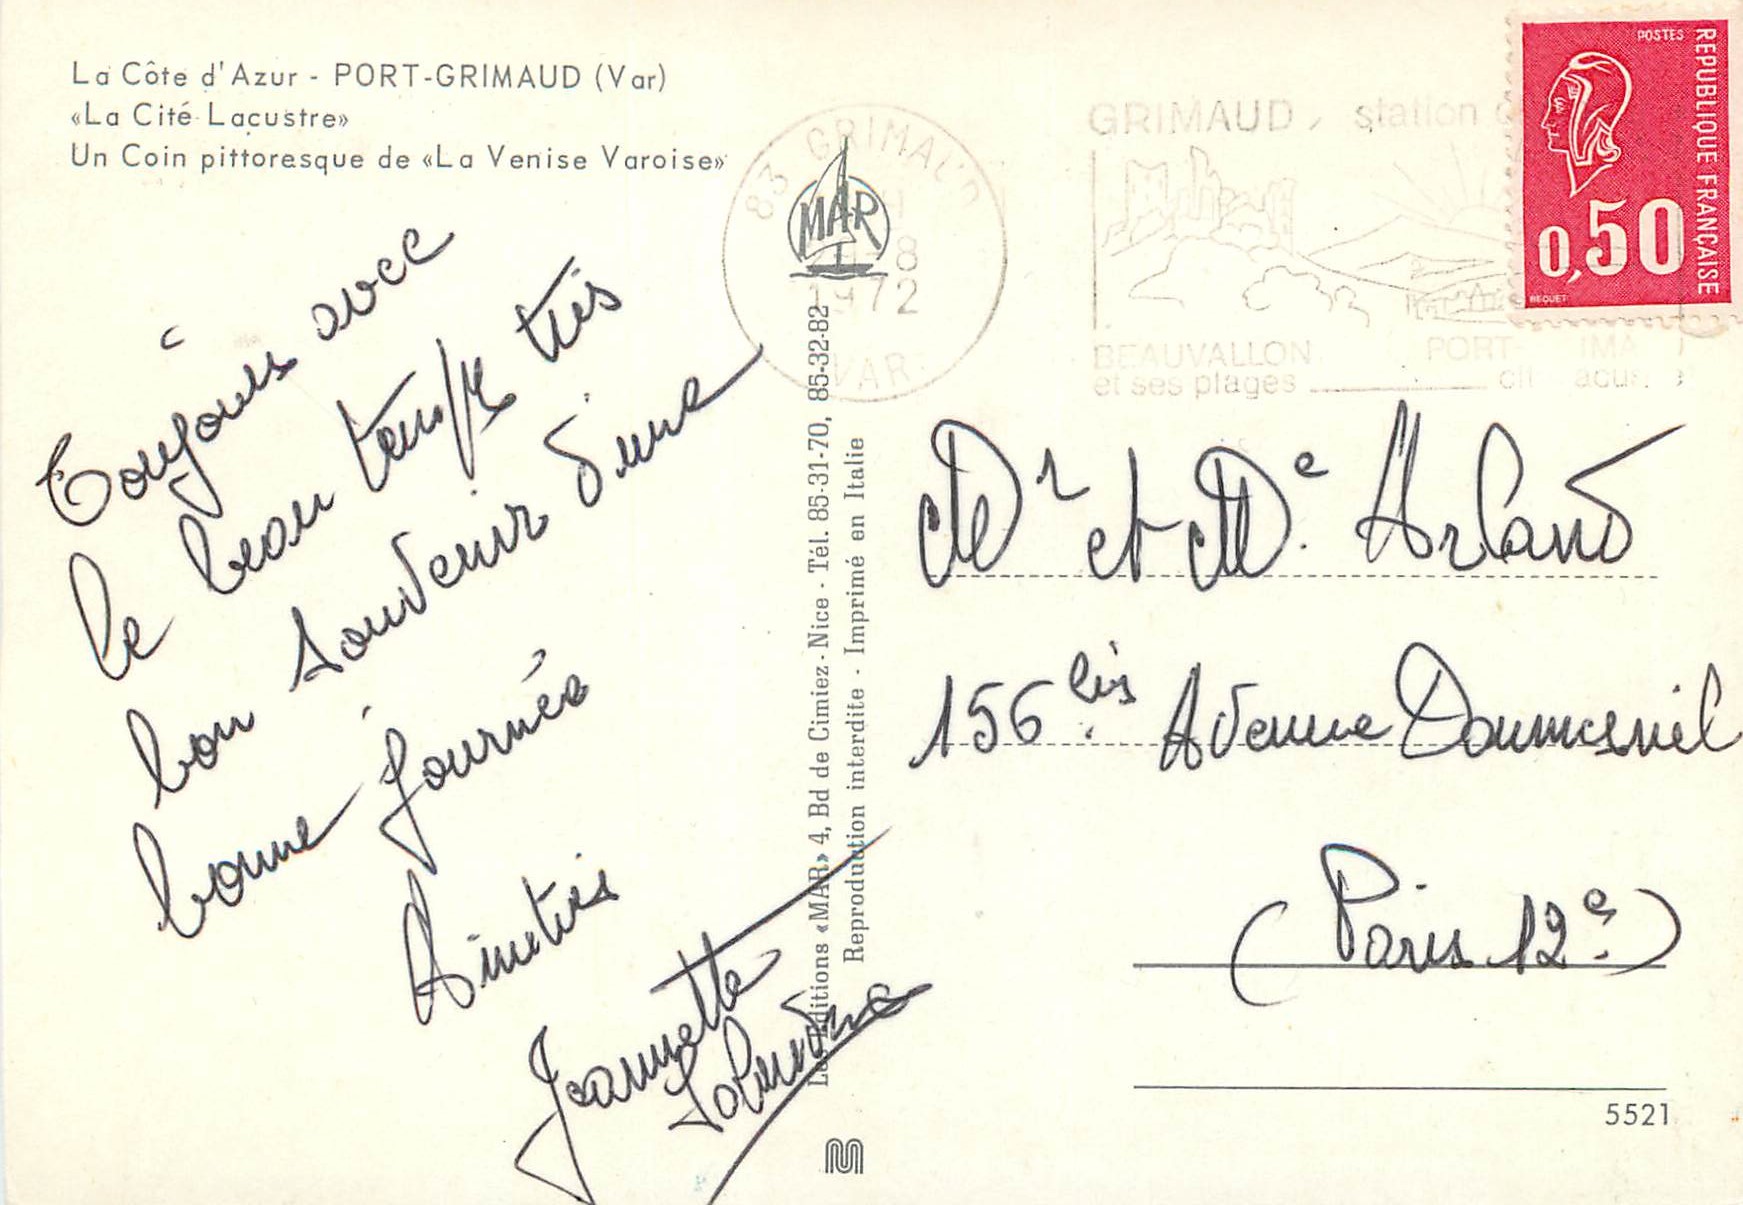 La Côte d'Azur - PORT-GRIMAUD (Var)
«La Cité Lacustre»
Un Coin pittoresque de «La Venise Varoise»
Toujours avec
le beau temps très
bon souvenir d'une
bonne journée
Amitiés
Jeannette
MAR
Les Editions «MAR» 4, Bd de Cimiez - Nice - Tél. 85-31-70, 85-32-82
Reproduction interdite - Imprimé en Italie
83 GRIMAUD
8
1972
VAR
GRIMAUD, station
BEAUVALLON
et ses plages
PORT-
POSTES
REPUBLIQUE FRANÇAISE
0,50
BEQUET
Mr et Me. Arland
156 bis Avenue Daumesnil
(Paris 12e)
5521